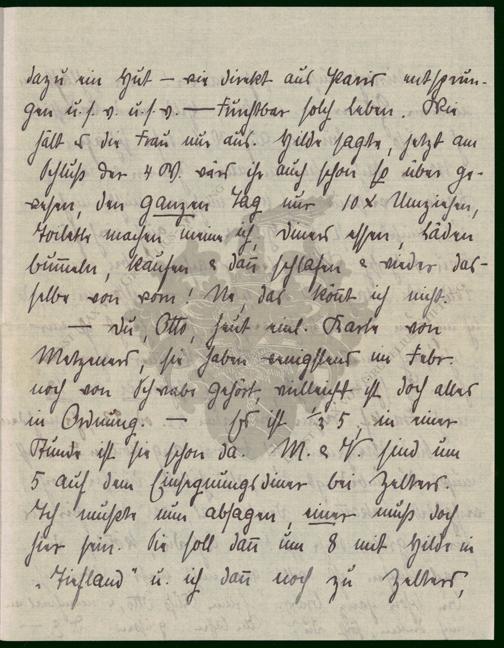 dazu ein Hut – wie direkt aus Paris entsprun-
gen u.s.v. u.s.v. — Furchtbar solch Leben. Wie
hält es die Frau nur aus. Hilde sagte, jetzt am
Schluß der 4 W. wäre ihr auch schon so über ge-
wesen, den ganzen Tag nur 10 x Umziehen,
Toilette machen meine ich, Diners essen, Läden
bum̅eln, kaufen & dan̅ schlafen & wieder das-
selbe von vorn! Ne, das kön̅t ich nicht.
— Du, Otto, heut einl. Karte von
Metzeners, sie haben wenigstens im Febr.
noch von Schwabe gehört, vielleicht ist doch alles
in Ordnung. — Es ist ½ 5, in einer
Stunde ist sie schon da. M. & V. sind um
5 auf dem Einsegnungsdiner bei Zelters.
Ich mußte nun absagen, einer muß doch
hier sein. Sie soll dan̅ um 8 mit Hilde in
„Tiefland" u. ich dan̅ noch zu Zelters,